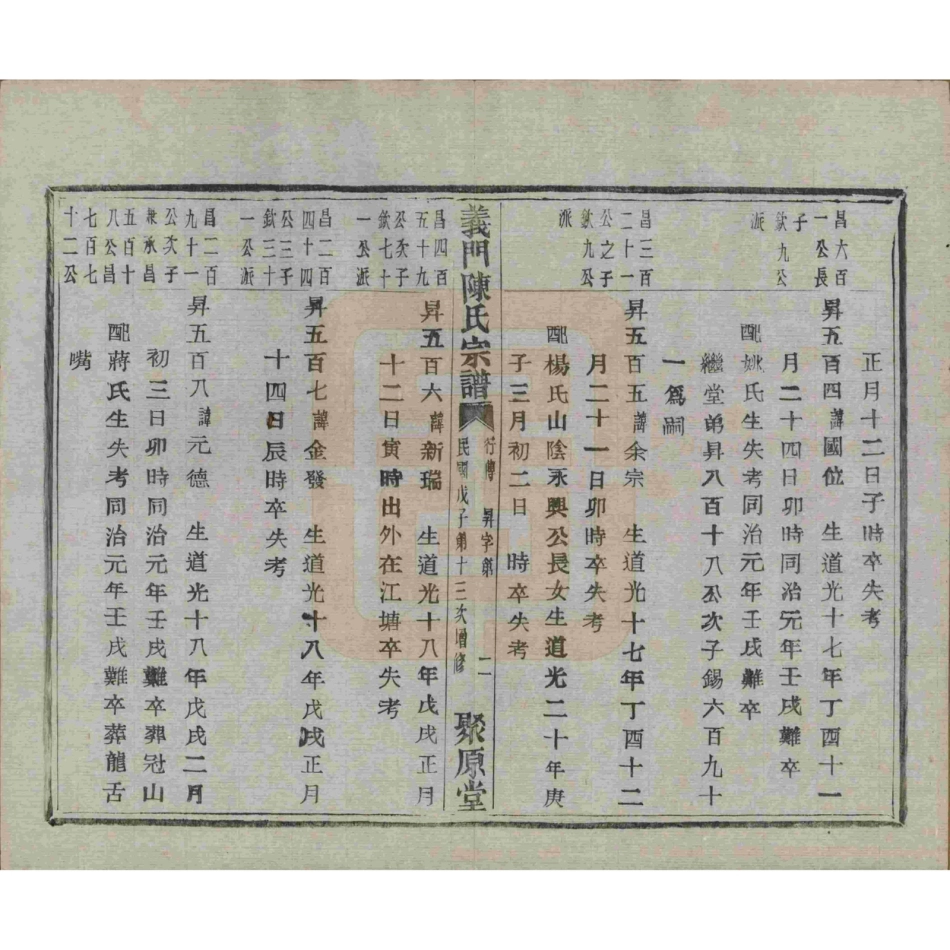 正月十二日子時卒失考
昌六百
一公長
子
欽九公
派
昇五百四諱國位 生道光十七年丁酉十一
月二十四日卯時同治元年壬戌難卒
配姚氏生失考同治元年壬戌難卒
繼堂弟昇八百十八公次子錫六百九十
一為嗣
昌三百
二十一
公之子
欽九公
派
昇五百五諱余宗 生道光十七年丁酉十二
月二十一日卯時卒失考
配楊氏山陰永興公長女生道光二十年庚
子三月初二日 時卒失考
義門陳氏宗譜
行傳 昇字弟 二
民國戊子弟十三次增修
聚原堂
昌四百
五十九
公次子
欽七十
一公派
昇五百六諱新瑞 生道光十八年戊戌正月
十二日寅時出外在江塘卒失考
昌二百
四十四
公三子
欽三十
一公派
昇五百七諱金發 生道光十八年戊戌正月
十四日辰時卒失考
昌二百
九十一
公次子
兼承昌
五百十
八公昌
七百七
十二公
昇五百八諱元德 生道光十八年戊戌二月
初三日卯時同治元年壬戌難卒葬冠山
配蔣氏生失考同治元年壬戌難卒葬龍舌
嘴